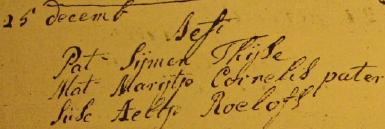 25 decemb
Jest
Pat- Sijmen Thijse
Mat Marijtje Cornelis pater
Suse Aeltje Roelofs